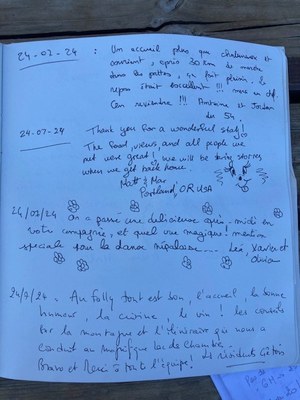 24-07-24 : Un accueil plus que chaleureux et
souriant, après 30 km de marche
dans les pattes, ça fait plaisir. le
repas était excellent !!! merci en tt cas
On reviendra !!! Antoine et Jordan
du 54.
24-07-24 Thank you for a wonderful stay!
The food, views, and all people we
met were great! We will be telling stories
when we get back home.
Matt & Max
Portland, OR USA
24/07/24 On a passé une délicieuse après-midi en
votre compagnie, et quel vue magique! mention
spéciale pour la danse népalaise... Léi, Xavier et
24/7/24. Au Folly tout est bon, l'accueil, la bonne
humeur, la cuisine, le vin! les conseils
sur la montagne et l'itinéraire qui nous a
conduit au magnifique lac de Chambre.
Bravo et Merci à toute l'équipe! Les résidents